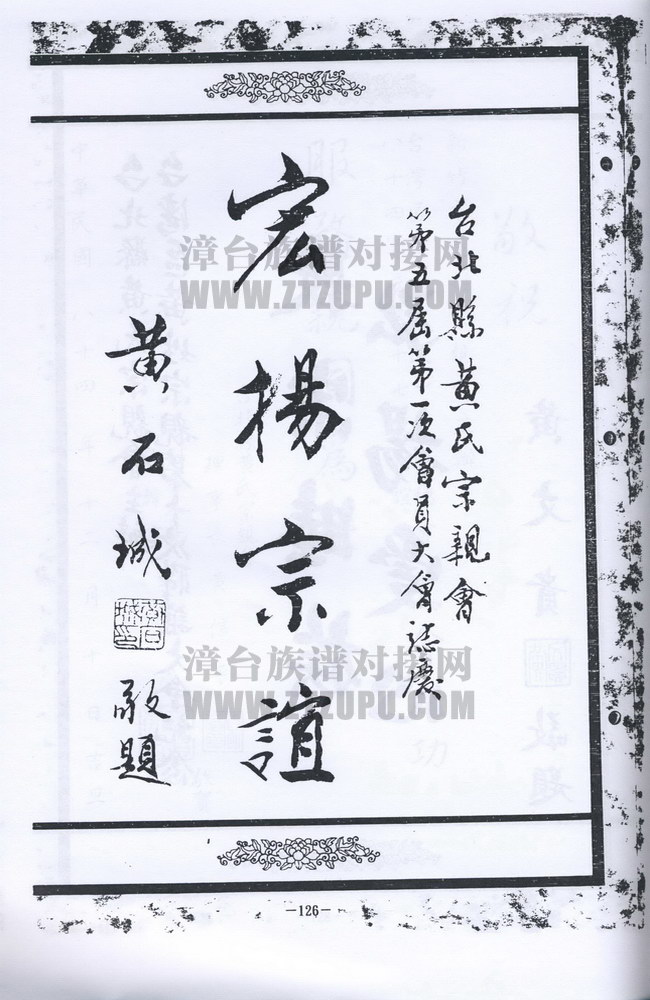 台北縣黃氏宗親會
第五屆第一次會員大會誌慶
宏揚宗誼
黃石城
敬題
漳台族谱对接网
WWW.ZTZUPU.COM
漳台族谱对接网
WWW.ZTZUPU.COM
-126-